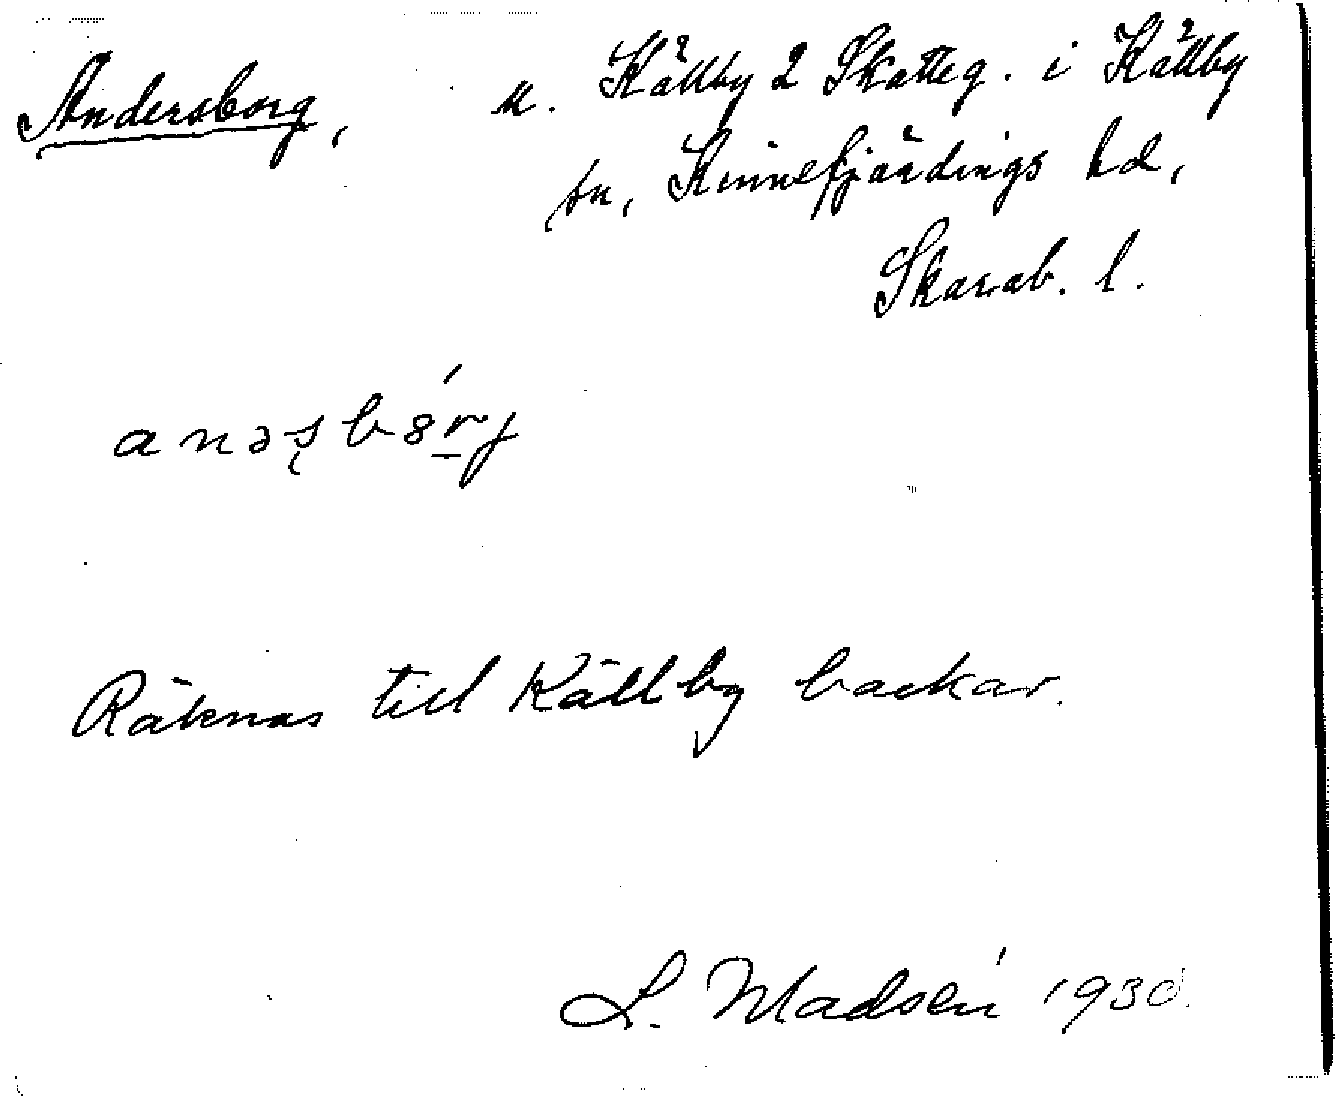 Andersborg, u. Källby 2 Skatteg. i Källby
sn, Kinnefjärdings hd,
Skarab. l.
Räknas till Källby backar.
L. Madsén 1930.